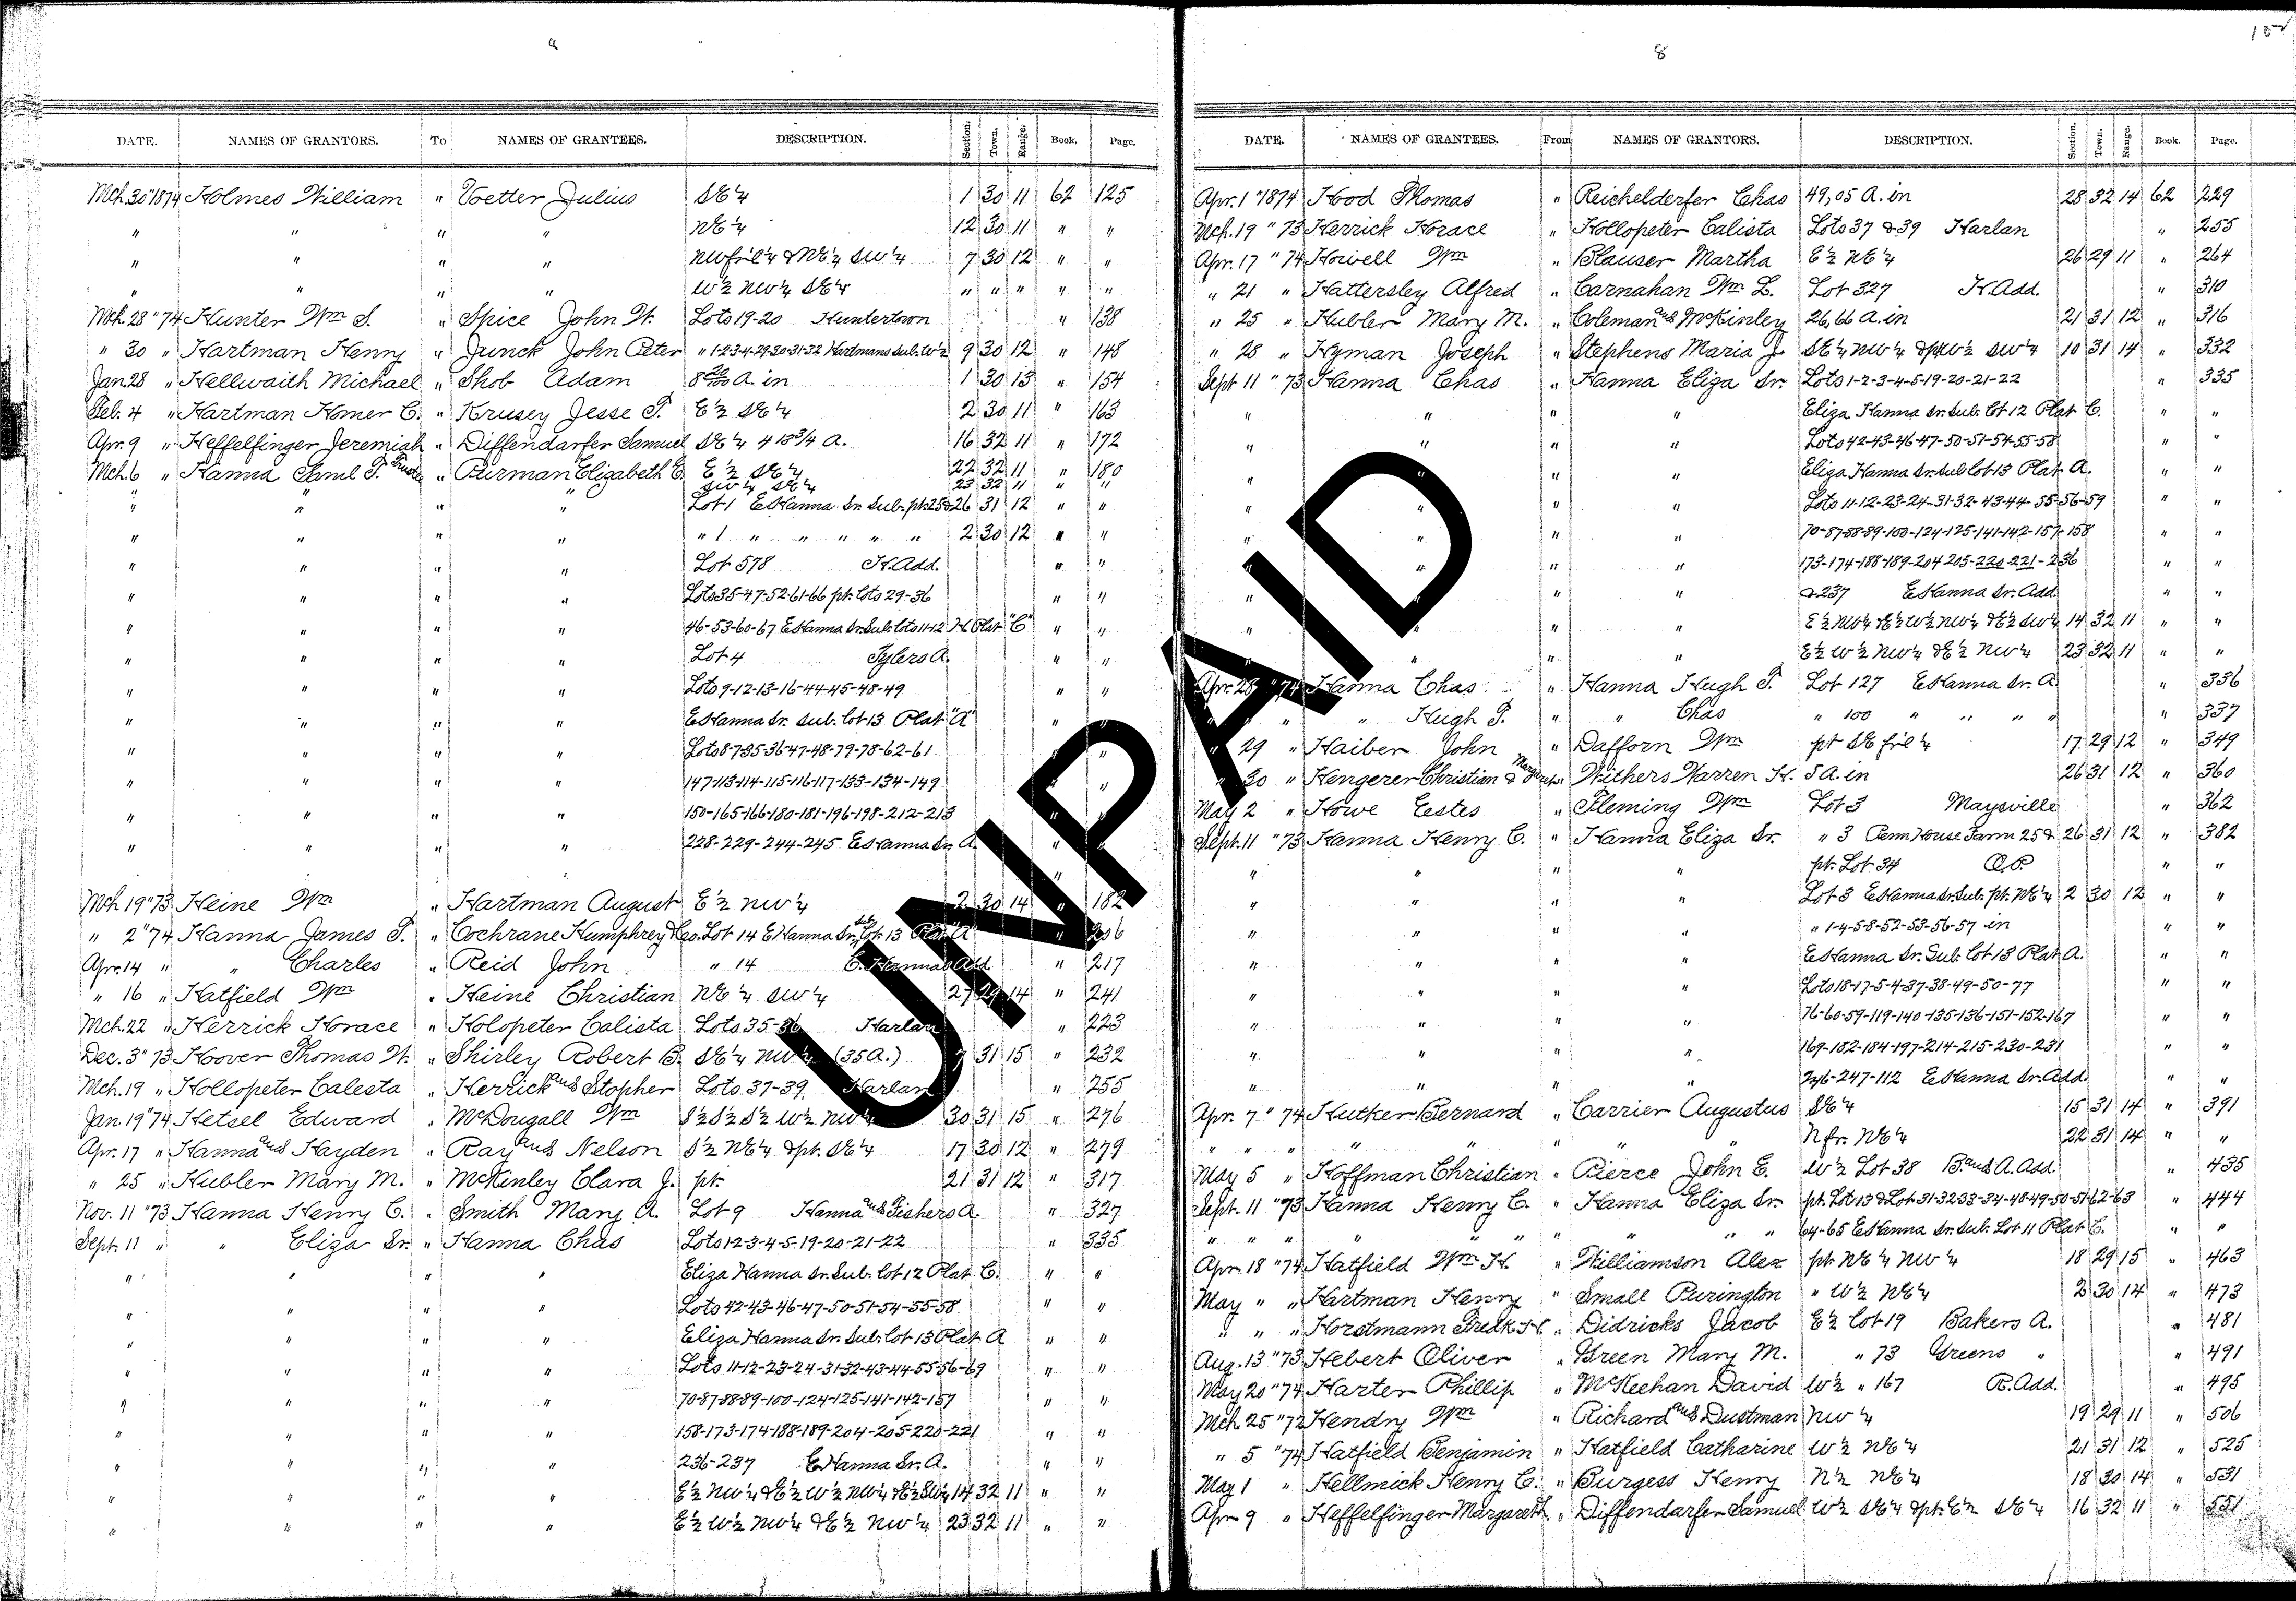 102
8
DATE. NAMES OF GRANTORS. To NAMES OF GRANTEES. DESCRIPTION. Section. Town. Range. Book. Page.
Mch. 30 " 1874 Holmes William " Voetter Julius SE ¼ 1 30 11 62 125
" " " " NE ¼ 12 30 11 " "
" " " " NW fr'l ¼ & NE ¼ SW ¼ 7 30 12 " "
" " " " W ½ NW ¼ SE ¼ " " " " "
Mch. 28 " 74 Hunter Wm S. " Spice John W. Lots 19-20 Huntertown " 138
" 30 " Hartman Henry " Junck John Peter " 1-2-3-4-29-30-31-32 Hartmans Sub. W ½ 9 30 12 " 148
Jan. 28 " Hellwaith Michael " Shob Adam 8 20/100 A. in 1 30 13 " 154
Feb. 4 " Hartman Homer C. " Krusey Jesse T. E ½ SE ¼ 2 30 11 " 163
Apr. 9 " Heffelfinger Jeremiah " Diffendarfer Samuel SE ¼ 4 18 ¾ A. 16 32 11 " 172
Mch. 6 " Hanna Saml T. Trustee " Purman Elizabeth C. E ½ SE ¼ 22 32 11 " 180
SW ¼ SE ¼ 23 32 11 " "
" " " " Lot 1 E Hanna Sr. Sub. pt. 25 & 26 31 12 " "
" " " " " 1 " " " " " 2 30 12 " "
" " " " Lot 578 H. Add. " "
" " " " Lots 35-47-52-61-66 pt. lots 29-36 " "
" " " " 46-53-60-67 E Hanna Sr. Sub. lots 11-12 H. Plat "C" " "
" " " " Lot 4 Tylers A. " "
" " " " Lots 9-12-13-16-44-45-48-49 " "
" " " " E Hanna Sr. Sub. lot 13 Plat "A" " "
" " " " Lots 8-7-35-36-47-48-79-78-62-61 "
" " " " 147-113-114-115-116-117-133-134-149 "
" " " " 150-165-166-180-181-196-198-212-213
" " " " 228-229-244-245 E Hanna Sr. A.
Mch 19 " 73 Heine Wm " Hartman August E ½ NW ¼ 2 30 14 " 182
" 2 " 74 Hanna James T. " Cochrane Humphrey & Co. Lot 14 E Hanna Sr. Sub. Lot 13 Plat "A" 206
Apr. 14 " " Charles " Reid John " 14 C. Hannas Add " 217
" 16 " Hatfield Wm " Heine Christian NE ¼ SW ¼ 27 29 14 " 241
Mch. 22 " Herrick Horace " Holopeter Calista Lots 35-36 Harlan " 223
Dec. 3 " 73 Hoover Thomas W. " Shirley Robert B. SE ¼ NW ¼ (35 A.) 7 31 15 " 232
Mch. 19 " Hollopeter Calesta " Herrick and Stopher Lots 37-39 Harlan " 255
Jan. 19 " 74 Hetsel Edward " McDougall Wm S ½ S ½ S ½ W ½ NW ¼ 30 31 15 " 276
Apr. 17 " Hanna and Hayden " Ray and Nelson S ½ NE ¼ & pt. SE ¼ 17 30 12 " 279
" 25 " Hubler Mary M. " McKinley Clara J. pt. 21 31 12 " 317
Nov. 11 " 73 Hanna Henry C. " Smith Mary A. Lot 9 Hanna and Fishers A. " 327
Sept. 11 " " Eliza Sr. " Hanna Chas Lots 1-2-3-4-5-19-20-21-22 " 335
" " " " Eliza Hanna Sr. Sub. lot 12 Plat C. " "
" " " " Lots 42-43-46-47-50-51-54-55-58 " "
" " " " Eliza Hanna Sr. Sub. lot 13 Plat A " "
" " " " Lots 11-12-23-24-31-32-43-44-55-56-69 " "
" " " " 70-87-88-89-100-124-125-141-142-157 " "
" " " " 158-173-174-188-189-204-205-220-221 " "
" " " " 236-237 E Hanna Sr. A. " "
" " " " E ½ NW ¼ & E ½ W ½ NW ¼ & E ½ SW ¼ 14 32 11 " "
" " " " E ½ W ½ NW ¼ & E ½ NW ¼ 23 32 11 " "
DATE. NAMES OF GRANTEES. From NAMES OF GRANTORS. DESCRIPTION. Section. Town. Range. Book. Page.
Apr. 1 " 1874 Hood Thomas " Reichelderfer Chas 49,05 A. in 28 32 14 62 229
Mch. 19 " 73 Herrick Horace " Hollopeter Calista Lots 37 & 39 Harlan " 255
Apr. 17 " 74 Howell Wm " Blauser Martha E ½ NE ¼ 26 29 11 " 264
" 21 " Hattersley Alfred " Carnahan Wm L. Lot 327 H. Add. " 310
" 25 " Hubler Mary M. " Coleman and McKinley 26,66 A. in 21 31 12 " 316
" 28 " Hyman Joseph " Stephens Maria J. SE ¼ NW ¼ & pt W ½ SW ¼ 10 31 14 " 332
Sept 11 " 73 Hanna Chas " Hanna Eliza Sr. Lots 1-2-3-4-5-19-20-21-22 " 335
" " " " Eliza Hanna Sr. Sub. lot 12 Plat C. " "
" " " " Lots 42-43-46-47-50-51-54-55-58 " "
" " " Eliza Hanna Sr. Sub lot 13 Plat A. " "
" " " Lots 11-12-23-24-31-32-43-44-55-56-59 " "
" " " " 70-87-88-89-100-124-125-141-142-157-158 " "
" " " " 173-174-188-189-204 205-220-221-236 " "
" " " " & 237 E Hanna Sr. Add " "
" " " E ½ NW ¼ & E ½ W ½ NW ¼ & E ½ SW ¼ 14 32 11 " "
" " " E ½ W ½ NW ¼ & E ½ NW ¼ 23 32 11 " "
Apr. 28 " 74 Hanna Chas " Hanna Hugh T. Lot 127 E Hanna Sr. A " 336
" " " Hugh T. " " Chas " 100 " " " " " 337
" 29 " Haiber John " Dafforn Wm pt SE fr'l ¼ 17 29 12 " 349
" 30 " Hengerer Christian & Margaret " Withers Warren H. 5 A. in 26 31 12 " 360
May 2 " Howe Estes " Fleming Wm Lot 3 Maysville " 362
Sept. 11 " 73 Hanna Henry C. " Hanna Eliza Sr. " 3 Penn House Farm 25 & 26 31 12 " 382
" " " " pt. Lot 34 O.P. " "
" " " " Lot 3 E Hanna Sr. Sub. pt. NE ¼ 2 30 12 " "
" " " " " 1-4-5-8-52-53-56-57 in " "
" " " " E Hanna Sr. Sub. lot 13 Plat A. " "
" " " " Lots 18-17-5-4-37-38-49-50-77 " "
" " " " 76-60-59-119-140-135-136-151-152-167 " "
" " " " 169-182-184-197-214-215-230-231 " "
" " " " 246-247-112 E Hanna Sr. Add " "
Apr. 7 " 74 Hutker Bernard " Carrier Augustus SE ¼ 15 31 14 " 391
" " " " " " " " N fr. NE ¼ 22 31 14 " "
May 5 " Hoffman Christian " Pierce John E. W ½ Lot 38 B. and A. Add " 435
Sept. 11 " 73 Hanna Henry C. " Hanna Eliza Sr. pt. Lot 13 & Lot 31-32 33-34-48-49-50-51-62-63 " 444
" " " " " " " " " 64-65 E Hanna Sr. Sub. Lot 11 Plat C. " "
Apr. 18 " 74 Hatfield Wm H. " Williamson Alex pt. NE ¼ NW ¼ 18 29 15 " 463
May " " Hartman Henry " Small Purington " W ½ NE ¼ 2 30 14 " 473
" " " Horstmann Fredk H. " Didricks Jacob E ½ lot 19 Bakers A. " 481
Aug. 13 " 73 Hebert Oliver " Green Mary M. " 73 Greens " " 491
May 20 " 74 Harter Phillip " McKeehan David W ½ " 167 R. Add. " 495
Mch 25 " 72 Hendry Wm " Richard and Dustman NW ¼ 19 29 11 " 506
" 5 " 74 Hatfield Benjamin " Hatfield Catharine W ½ NE ¼ 21 31 12 " 525
May 1 " Hellmick Henry C. " Burgess Henry N ½ NE ¼ 18 30 14 " 531
Apr 9 " Heffelfinger Margareth " Diffendarfer Samuel W ½ SE ¼ & pt. E ½ SE ¼ 16 32 11 " 551
UNPAID